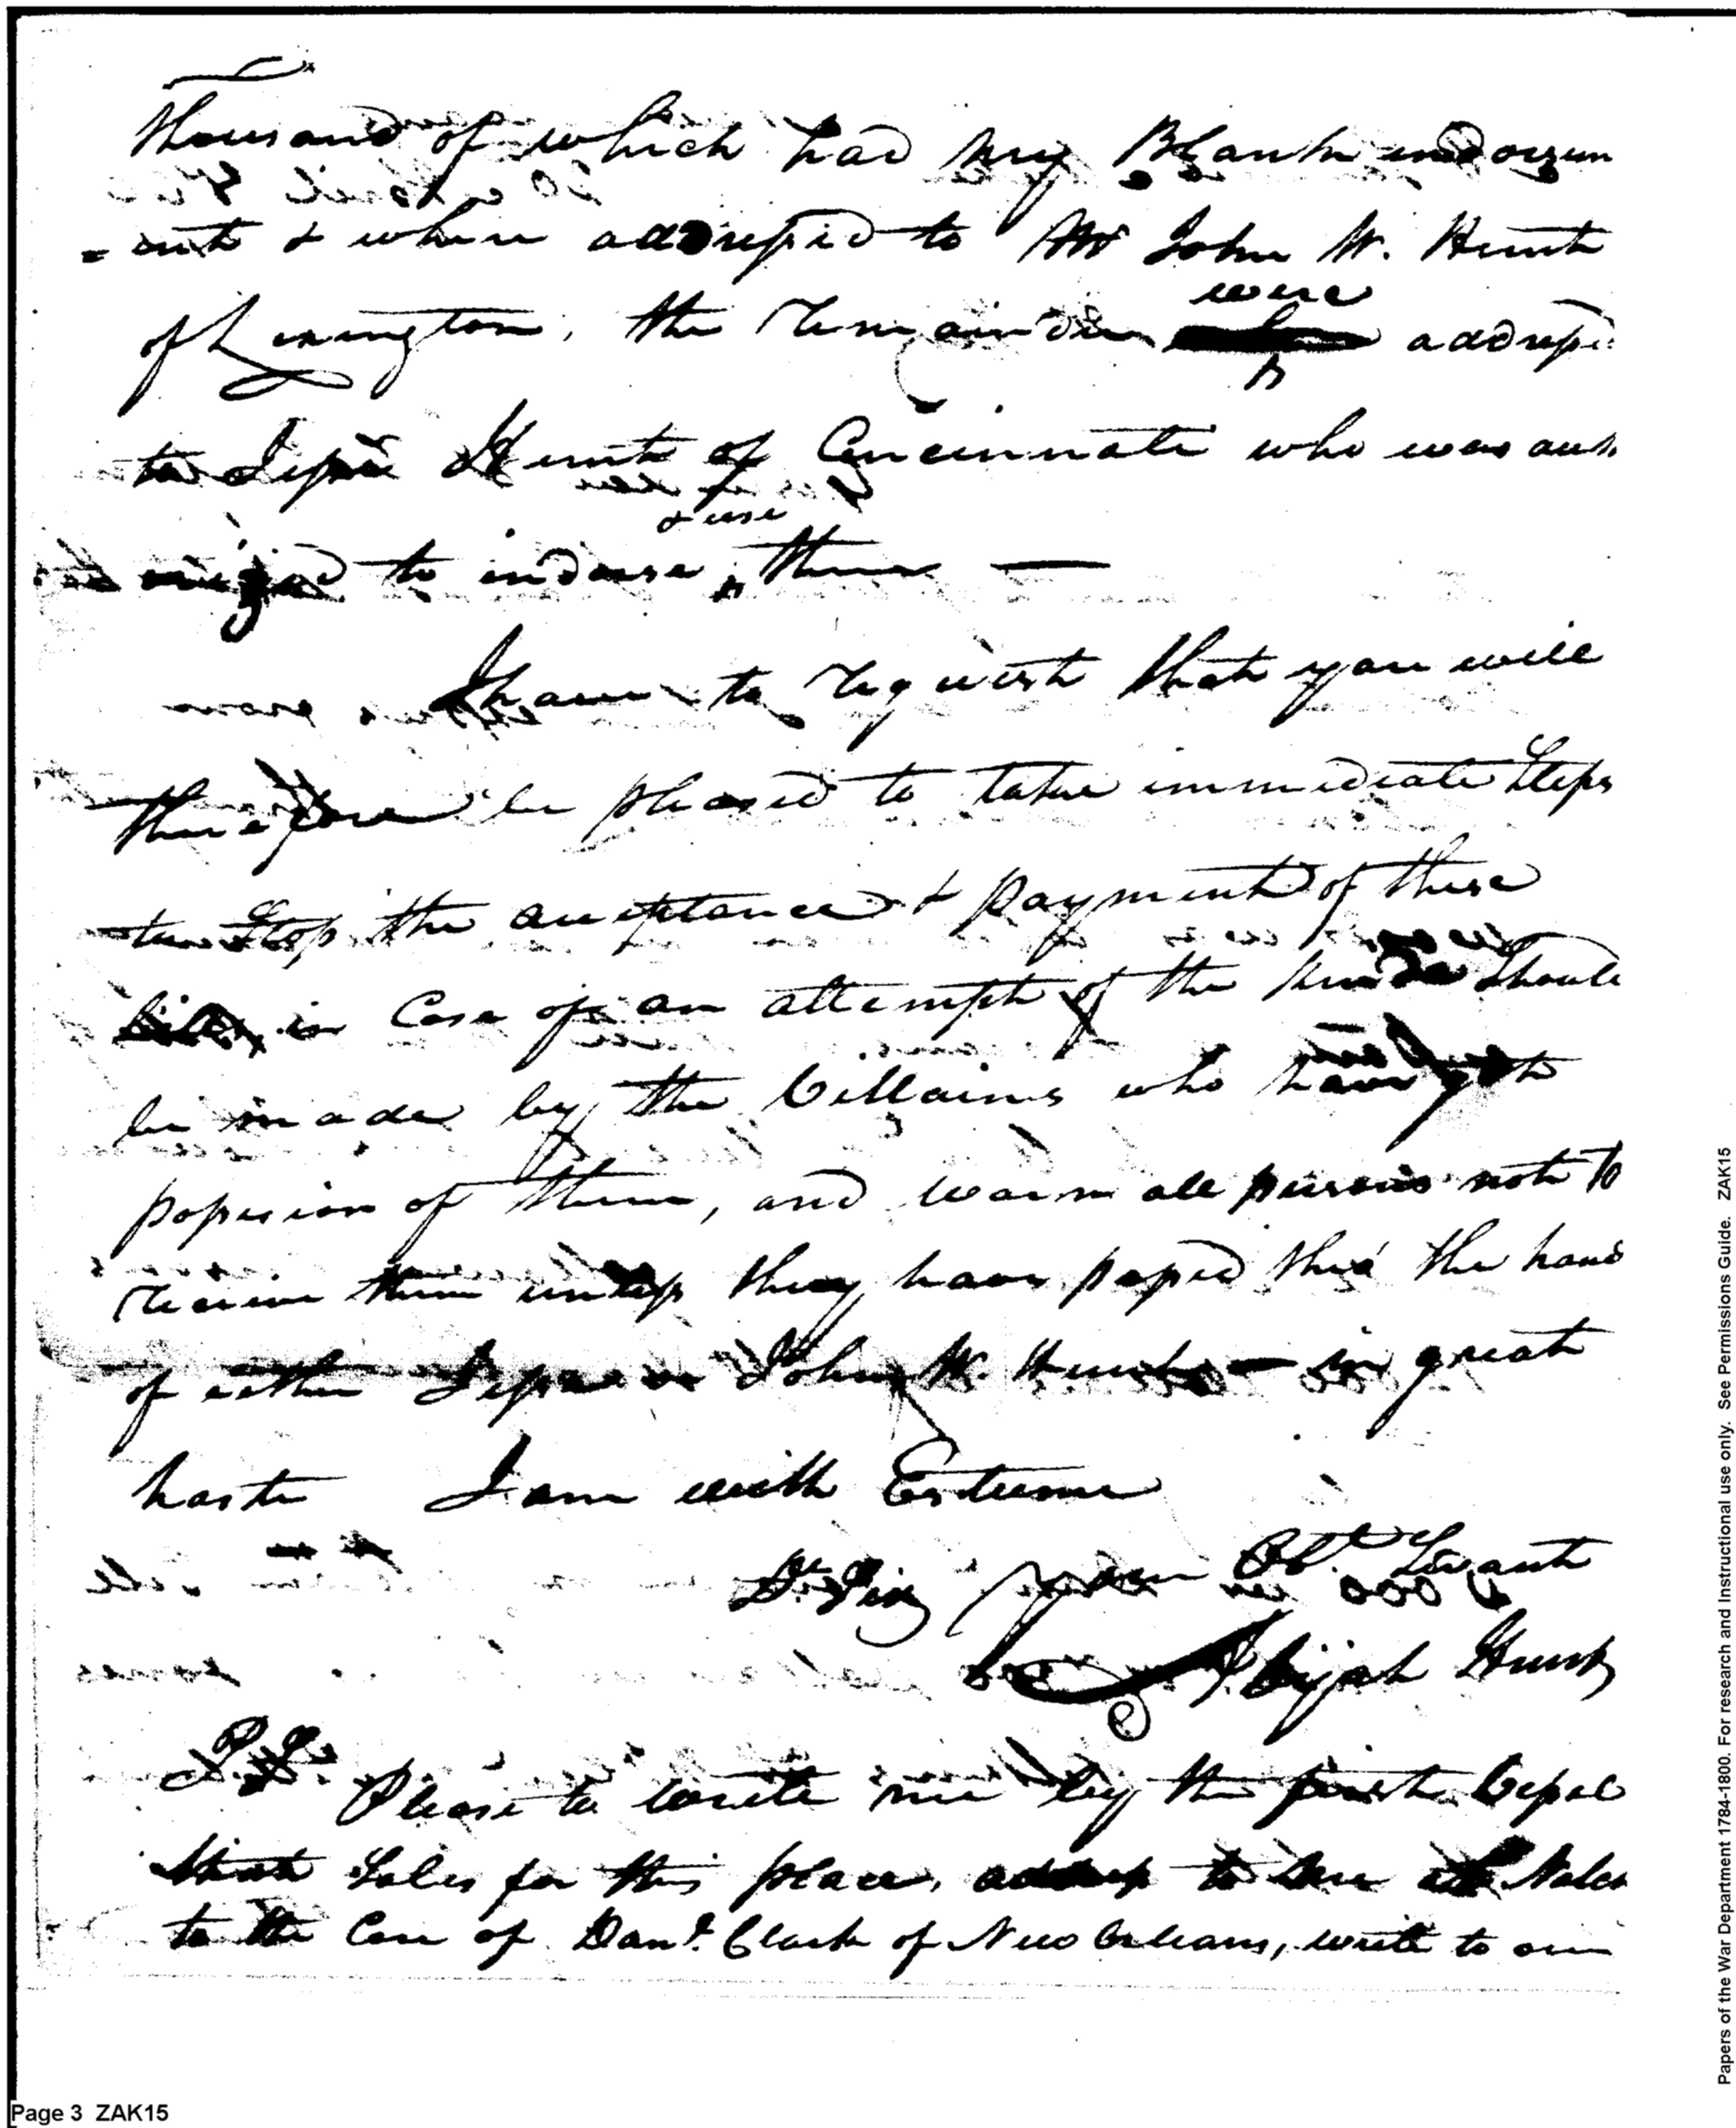 thousand of which had my Blank indorsem
=ent & when addressed to Mr John W. Hunt
of Lexington, the Remainder were address
to Jesse Hunt of Cincinnati who was auth
to indorse & use them —
I have to Request that you will
therefore be pleased to take immediate Steps
to Stop the acceptance & payment of these
bills, in Case of an attempt of the kind Should
be made by the Villains who have got
possession of them, and warn all persons not to
Receive them unless they have passed thro' the hand
of either Jesse or John W. Hunt — in great
haste I am with Esteeme
Dr. Sir your Obt. Servant
Abijah Hunt
P.S. Please to write me by the first Vessel
that Sales for this place, address to me at Natch
to the Care of Danl. Clark of New Orleans, write to om
Page 3 ZAK15
Papers of the War Department 1784-1800. For research and Instructional use only. See Permissions Guide. ZAK15